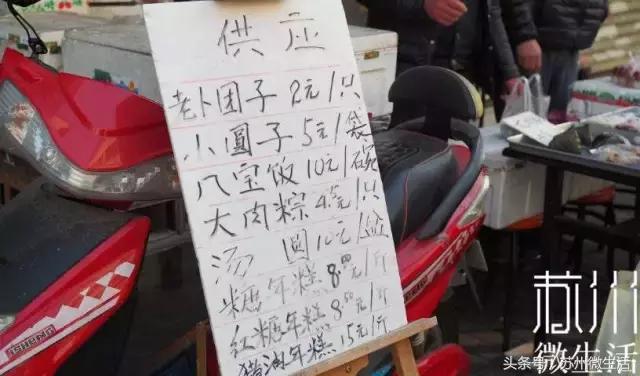 供应
老卜团子 2元/只
小圆子 5元/袋
八宝饭 10元/碗
大肉粽 4.5元/只
汤圆 10元/盒
糖年糕 8.00元/斤
红糖年糕 8.50元/斤
猪油年糕 15元/斤
苏州
微生活
头条号/苏州微生活